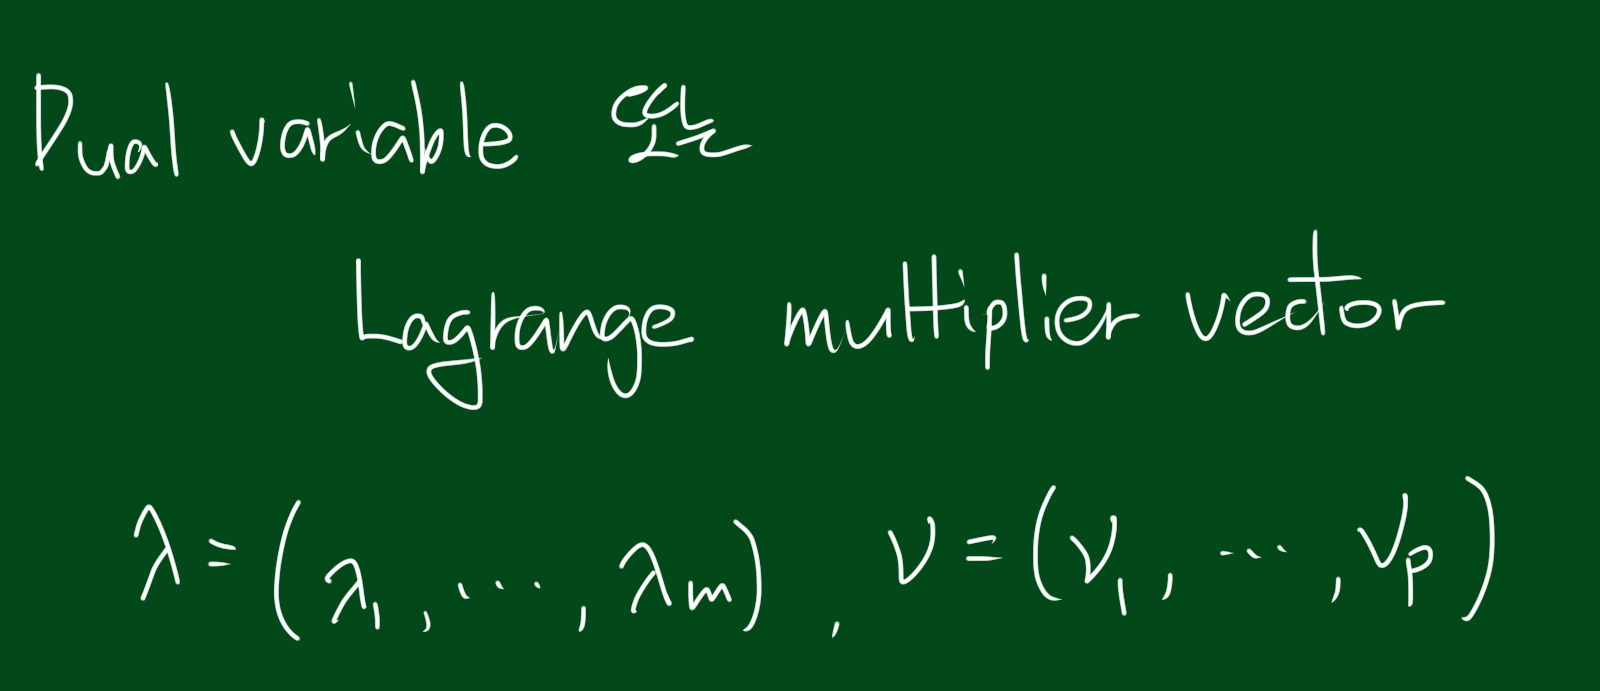 Dual variable 또는
Lagrange multiplier vector
λ = (λ₁, ..., λₘ), ν = (ν₁, ..., νₚ)